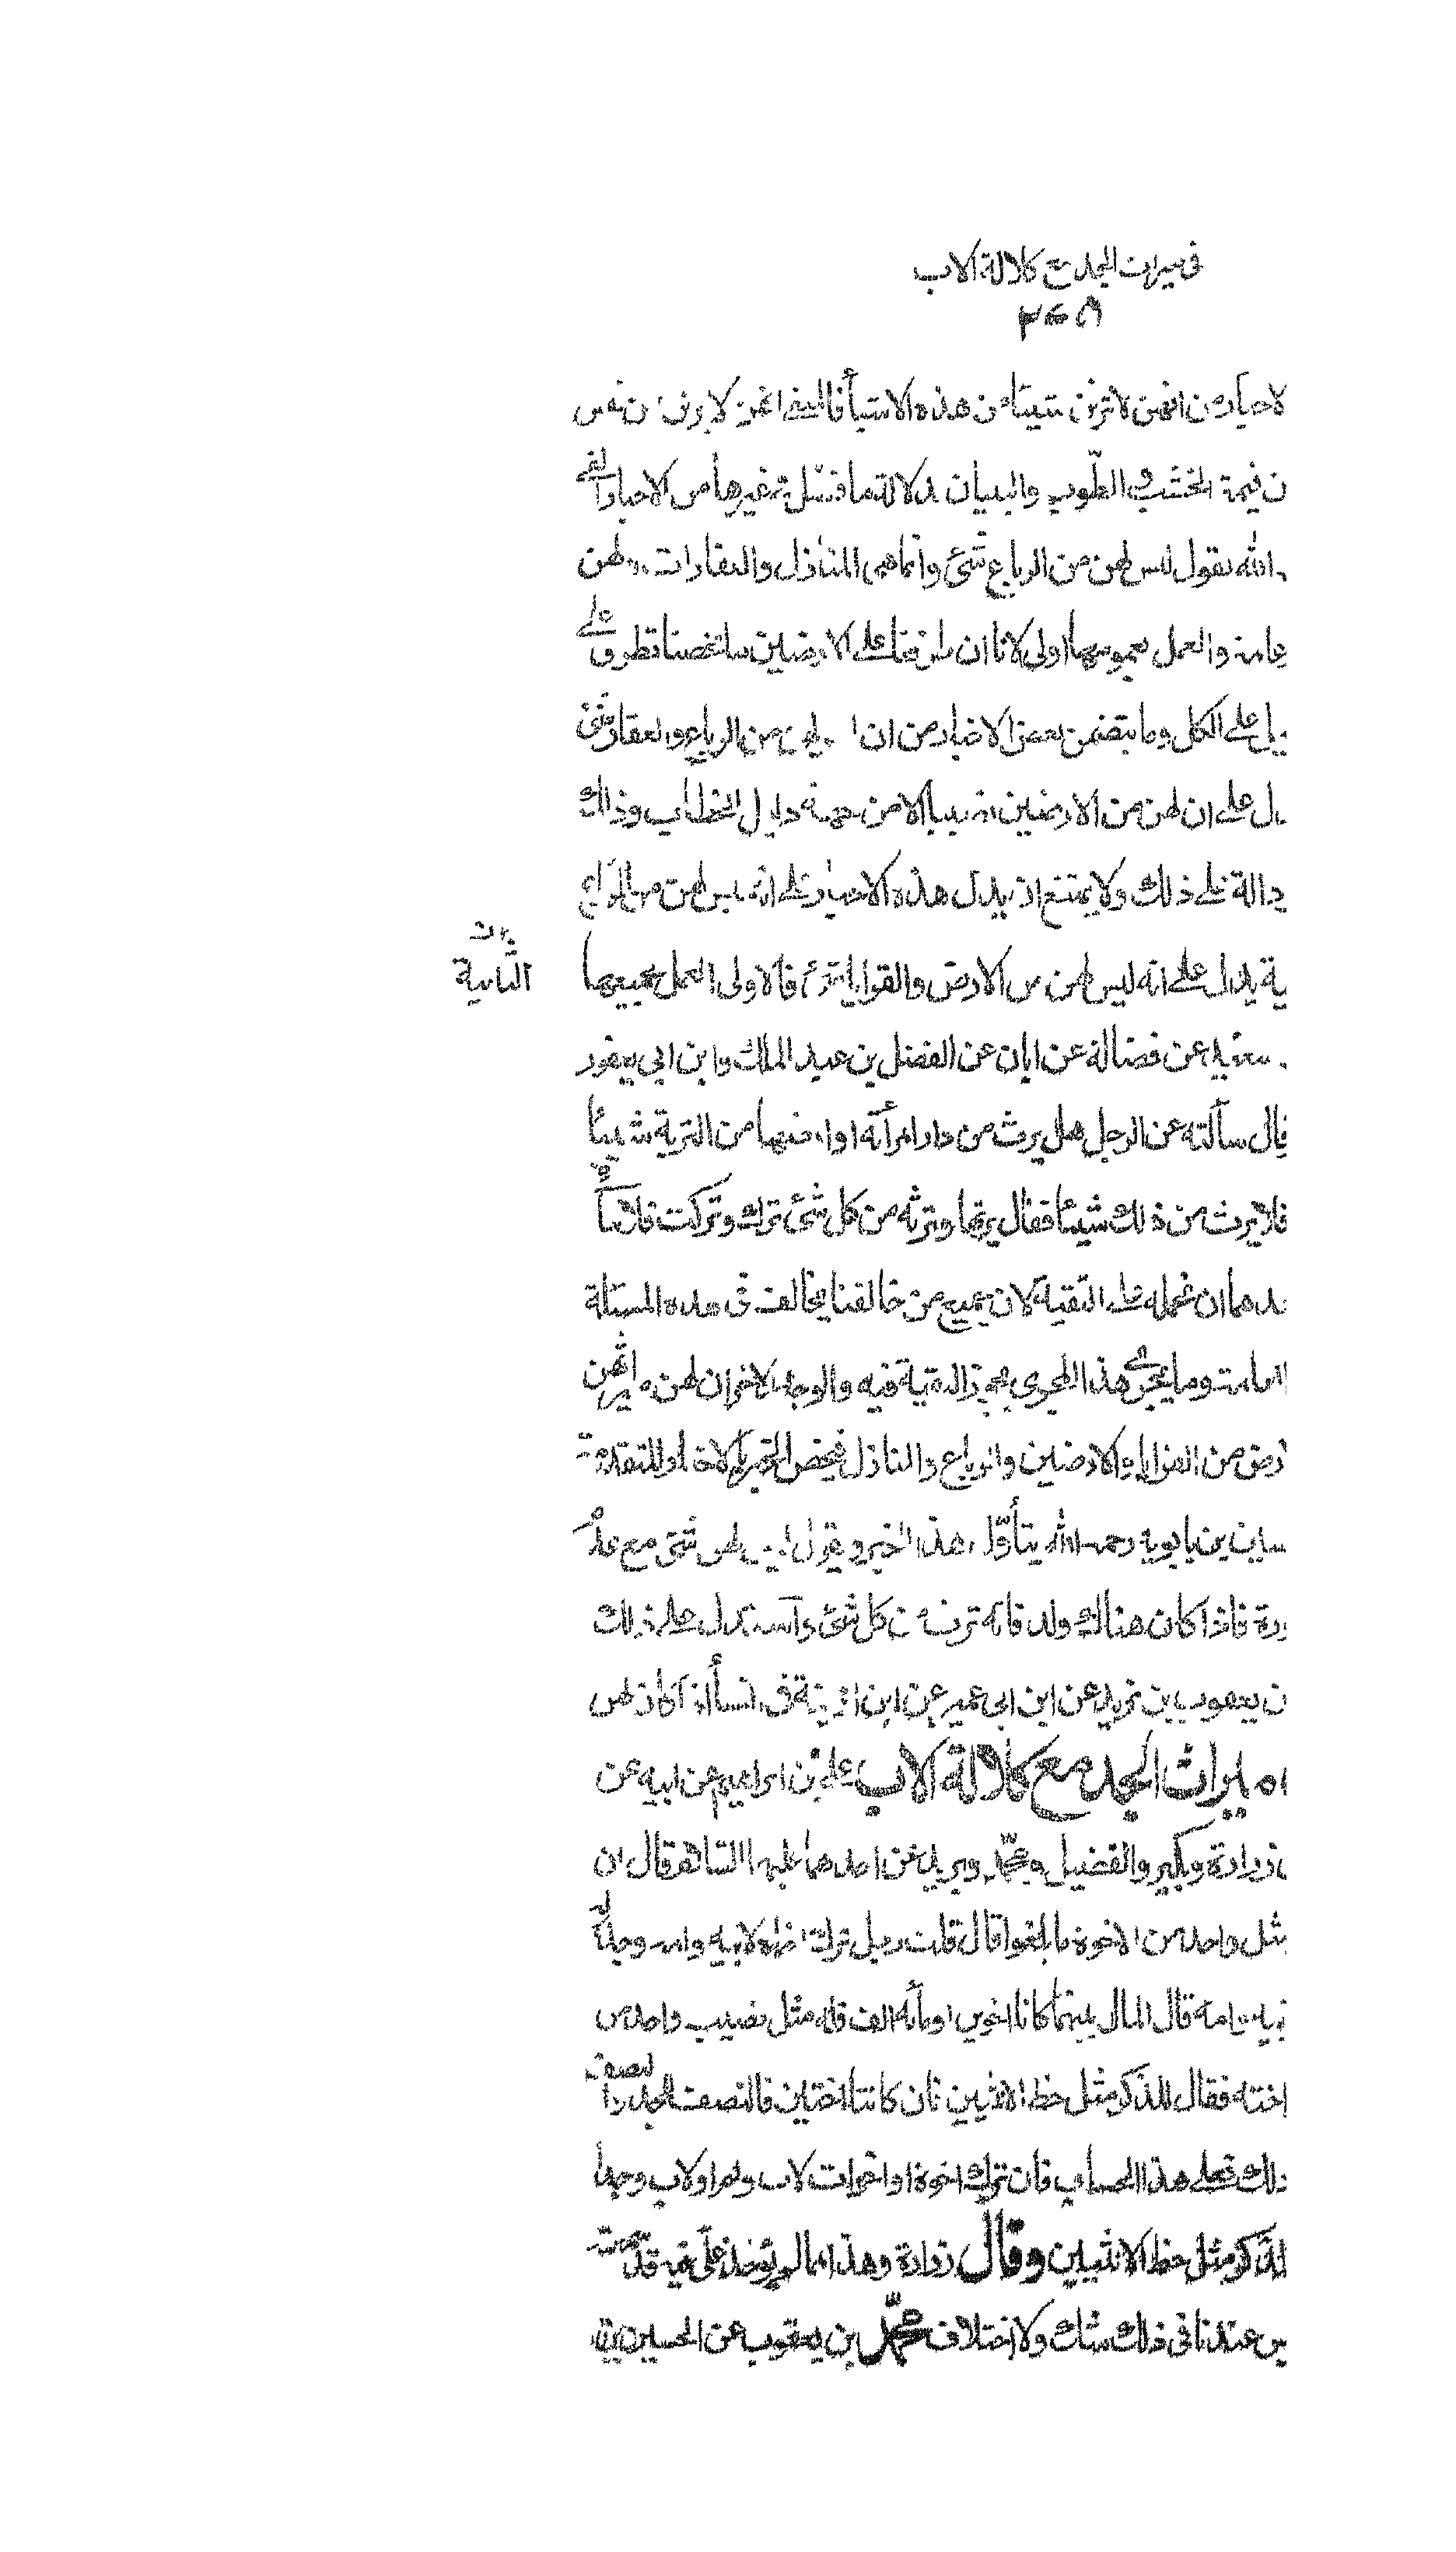 في ميراث الجد مع كلالة الاب
٢٤٥
لاخبار من انهن لا ترثن شيئا من هذه الاشياء فالمعنى انهن لا يرثن من نفس
ن قيمة الخشب و الطوب والبنيان بدلالة ما في غيرها من الاخبار
الله يقول ليس لهن من الرباع شئ وانما هي المنازل والعقارات ولهن
عامة والعمل بعمومها اولى لانا ان على الارضين تطرق على
على الكل وما يتضمن بعض الاخبار من ان لهن من الرباع والعقار شئ
دل على ان لهن من الارضين الا من جهة دليل الخطاب وذلك
دالة على ذلك ولا يمتنع ان يدل هذه الاخبار على انه ليس لهن من الرباع
ية يدل على انه ليس لهن من الارض والقرايا شئ فالاولى العمل بجميعها
الثانية
سعيد عن فضالة عن ابان عن الفضل بن عبد الملك وابن ابي يعفور
قال سألته عن الرجل هل يرث من دار امرأته او ارضها من التربة شيئا
فلا يرث من ذلك شيئا فقال يرثها وترثه من كل شئ ترك وتركت فلا
احدهما ان نحمله على التقية لان جميع من خالفنا يخالف في هذه المسئلة
العامة وما يجري هذا المجرى يجوز التقية فيه والوجه الاخر ان لهن ميراثهن
رض من القرايا والارضين والرباع والمنازل فيخص الخبر بالاخبار المتقدمة
سين بن بابويه رحمه الله يتأول هذا الخبر ويقول ليس لهن شئ مع عدم
فاذا كان هناك ولد فانه ترث من كل شئ واستدل على ذلك
ن يعقوب بن يزيد عن ابن ابي عمير عن ابن اذينة في النسأ اذا كان لهن
ميراث الجد مع كلالة الاب علي بن ابراهيم عن ابيه عن
زرارة وبكير والفضيل ومحمد وبريد عن احدهما عليهما السلام قال ان
مثل واحد من الاخوة ما بلغوا قال قلت رجل ترك اخاه لابيه وامه وجده
قال المال بينهما كانا اخوين او مائة الف فله مثل نصيب واحد من
اخته فقال للذكر مثل حظ الانثيين فان كانتا اختين فالنصف للجد والنصف
ذلك فعلى هذا الحساب فان ترك اخوة او اخوات لاب وام او لاب وجدا
للذكر مثل حظ الانثيين وقال زرارة وهذا مما لم يؤخذ علي فيه قد سمعته
يس عندنا في ذلك شك ولا اختلاف محمد بن يعقوب عن الحسين بن